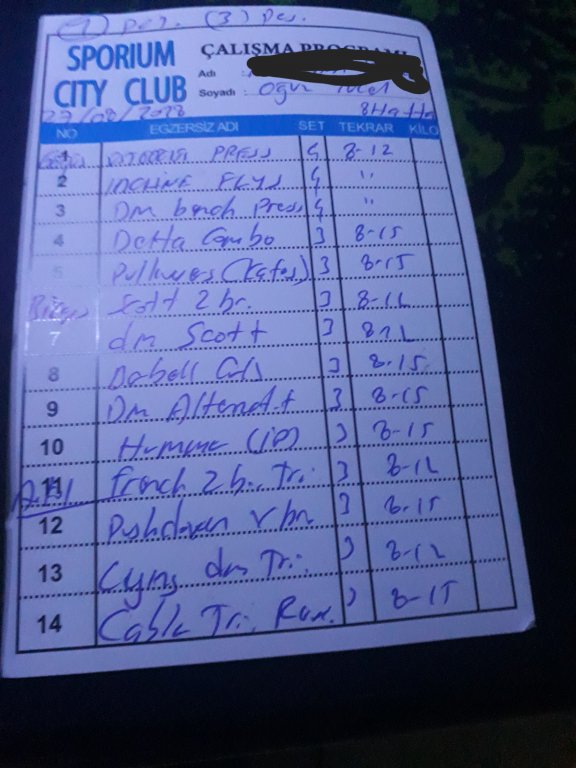 (1) Paz. (3) Per.
SPORIUM
CITY CLUB
ÇALIŞMA PROGRAMI
Adı :
Soyadı : Oğuz
23/08/2023 8 Hafta
NO EGZERSİZ ADI SET TEKRAR KİLO
1 PRESS 4 8-12
2 INCLINE FLYS 4 "
3 Dm bench Press 4 "
4 Detta Combo 3 8-15
5 Pullwers (Kafes) 3 8-15
Scott 2 br. 3 8-12
7 dm Scott 3 8-12
8 3 8-15
9 Dm Alternat 3 8-15
10 Hummer (ip) 3 8-15
11 french 2 br. Tri. 3 8-12
12 Pushdown V br. 3 8-15
13 dm Tri. 3 8-12
14 Cable Tri. 3 8-15